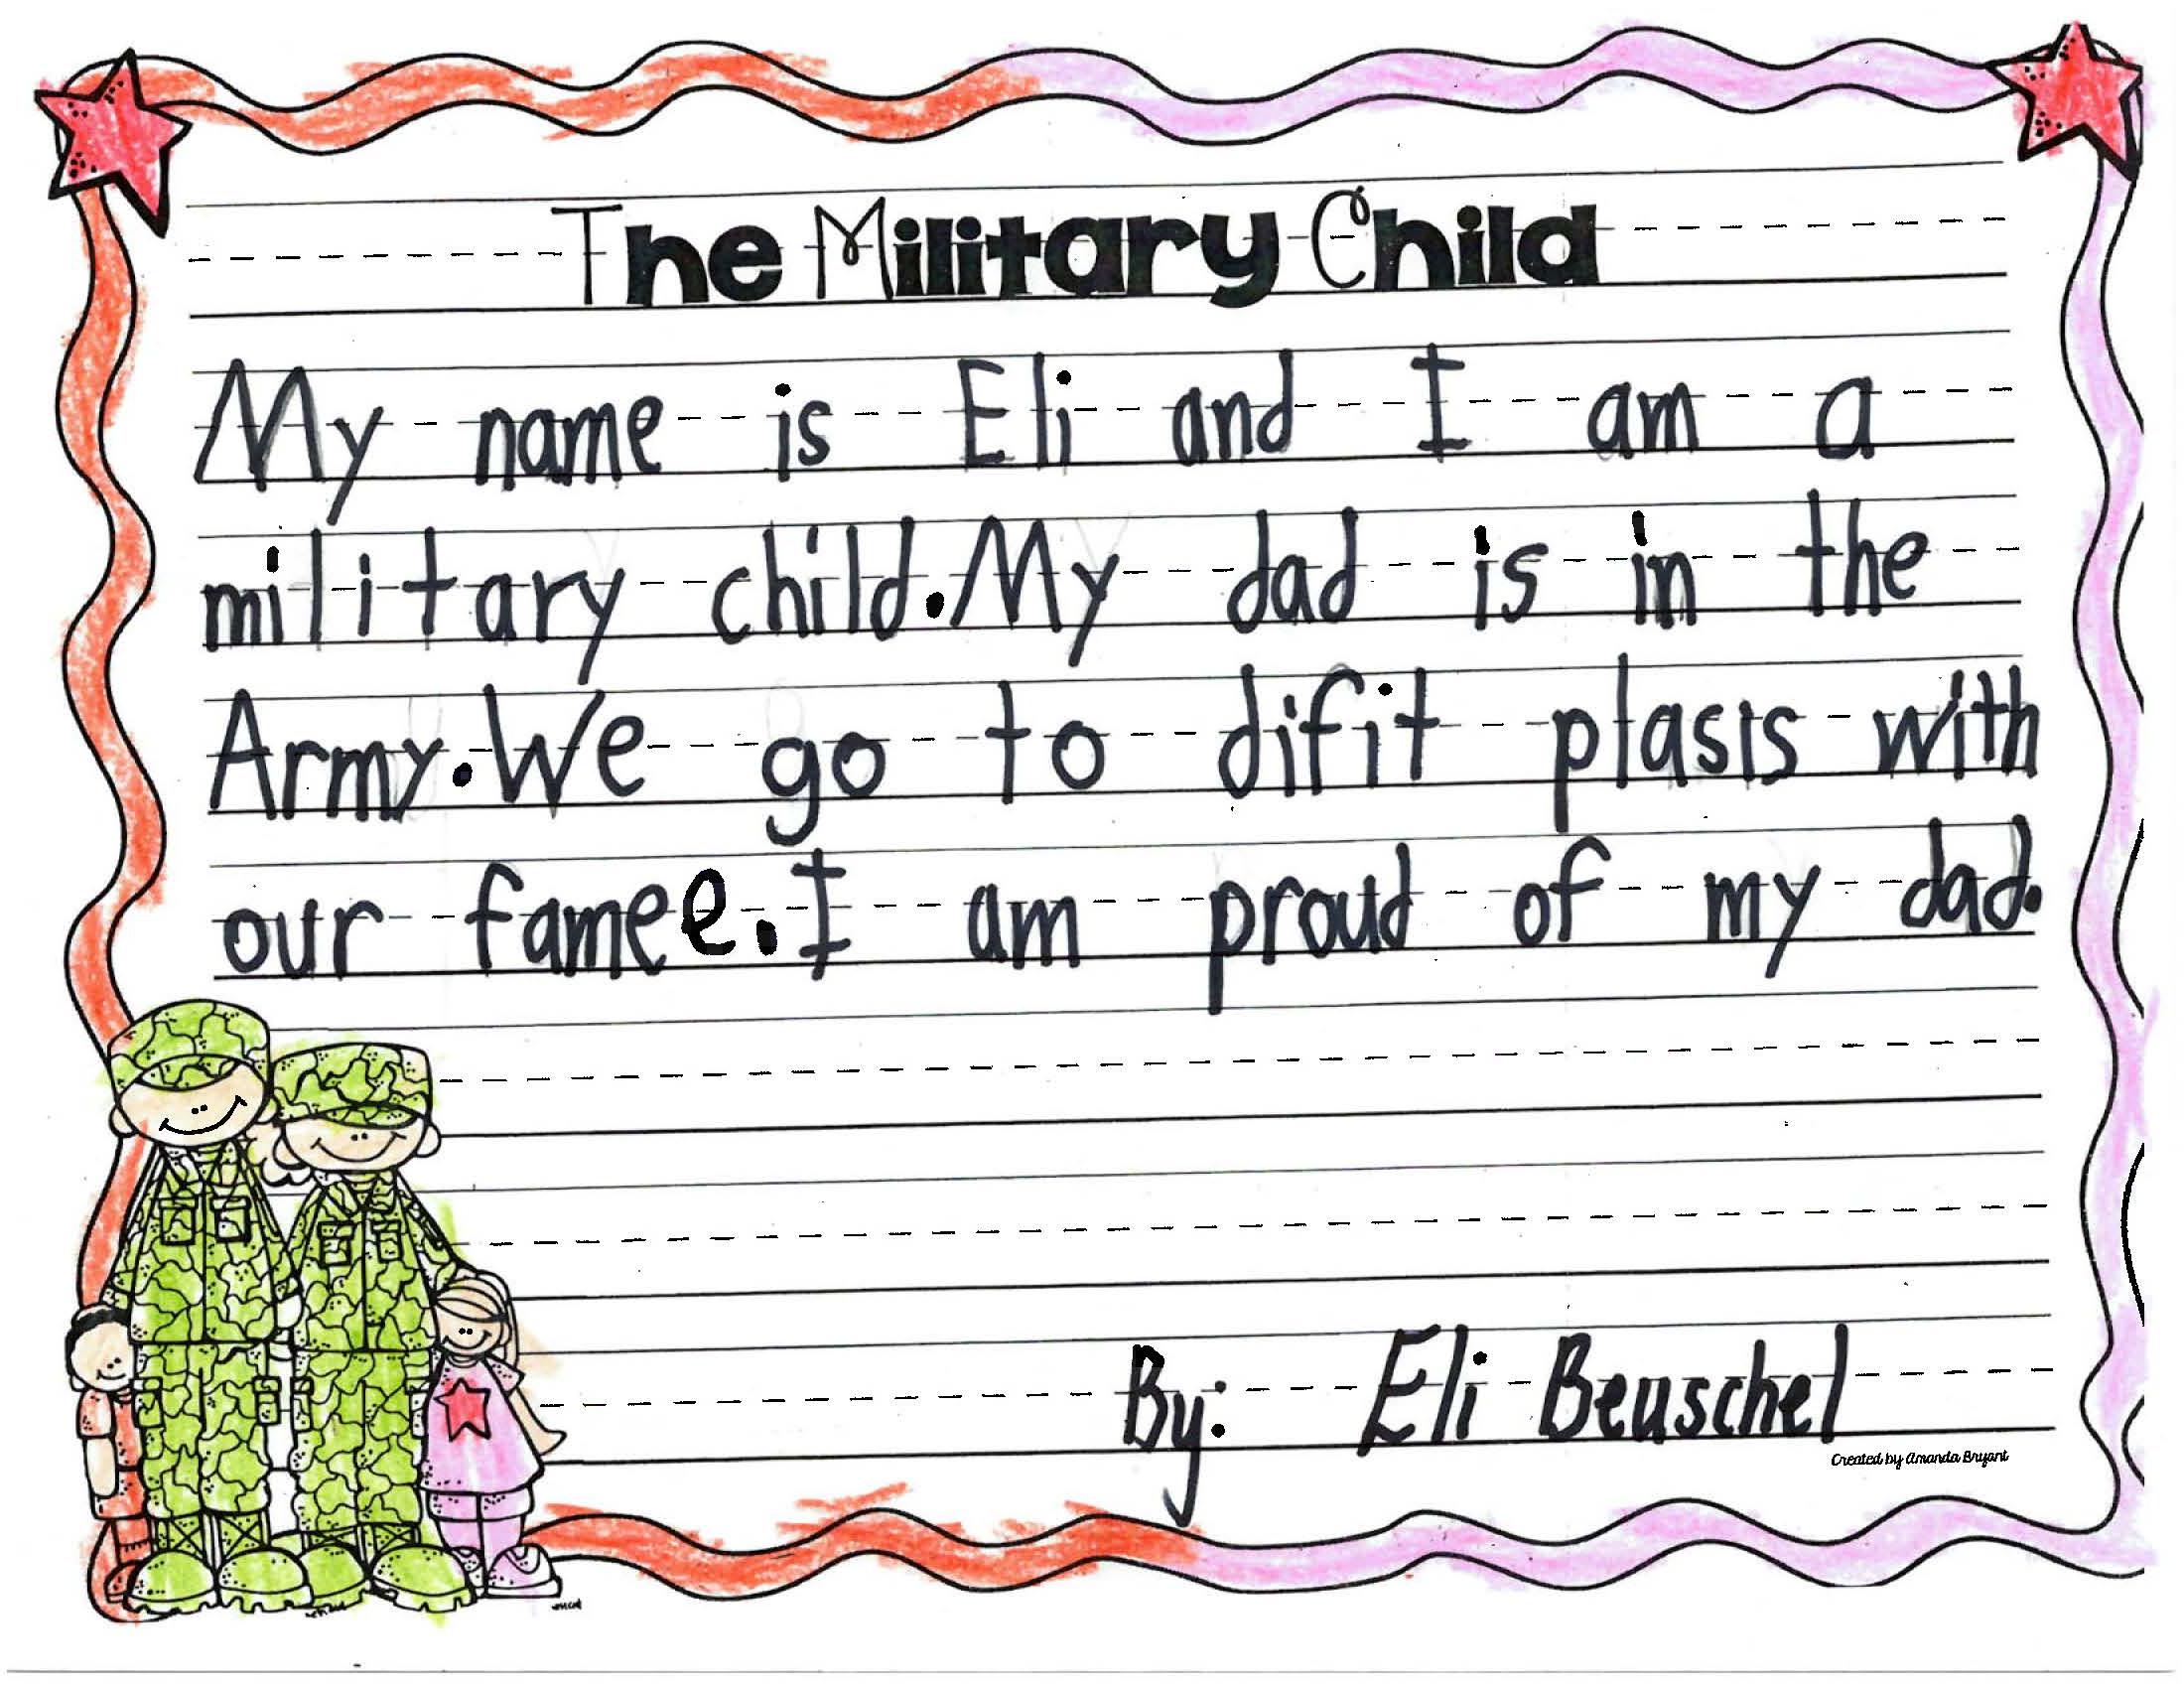 The Military Child
My name is Eli and I am a
military child. My dad is in the
Army. We go to difit plasis with
our famee. I am proud of my dad.
By: Eli Beuschel
Created by Amanda Bryant